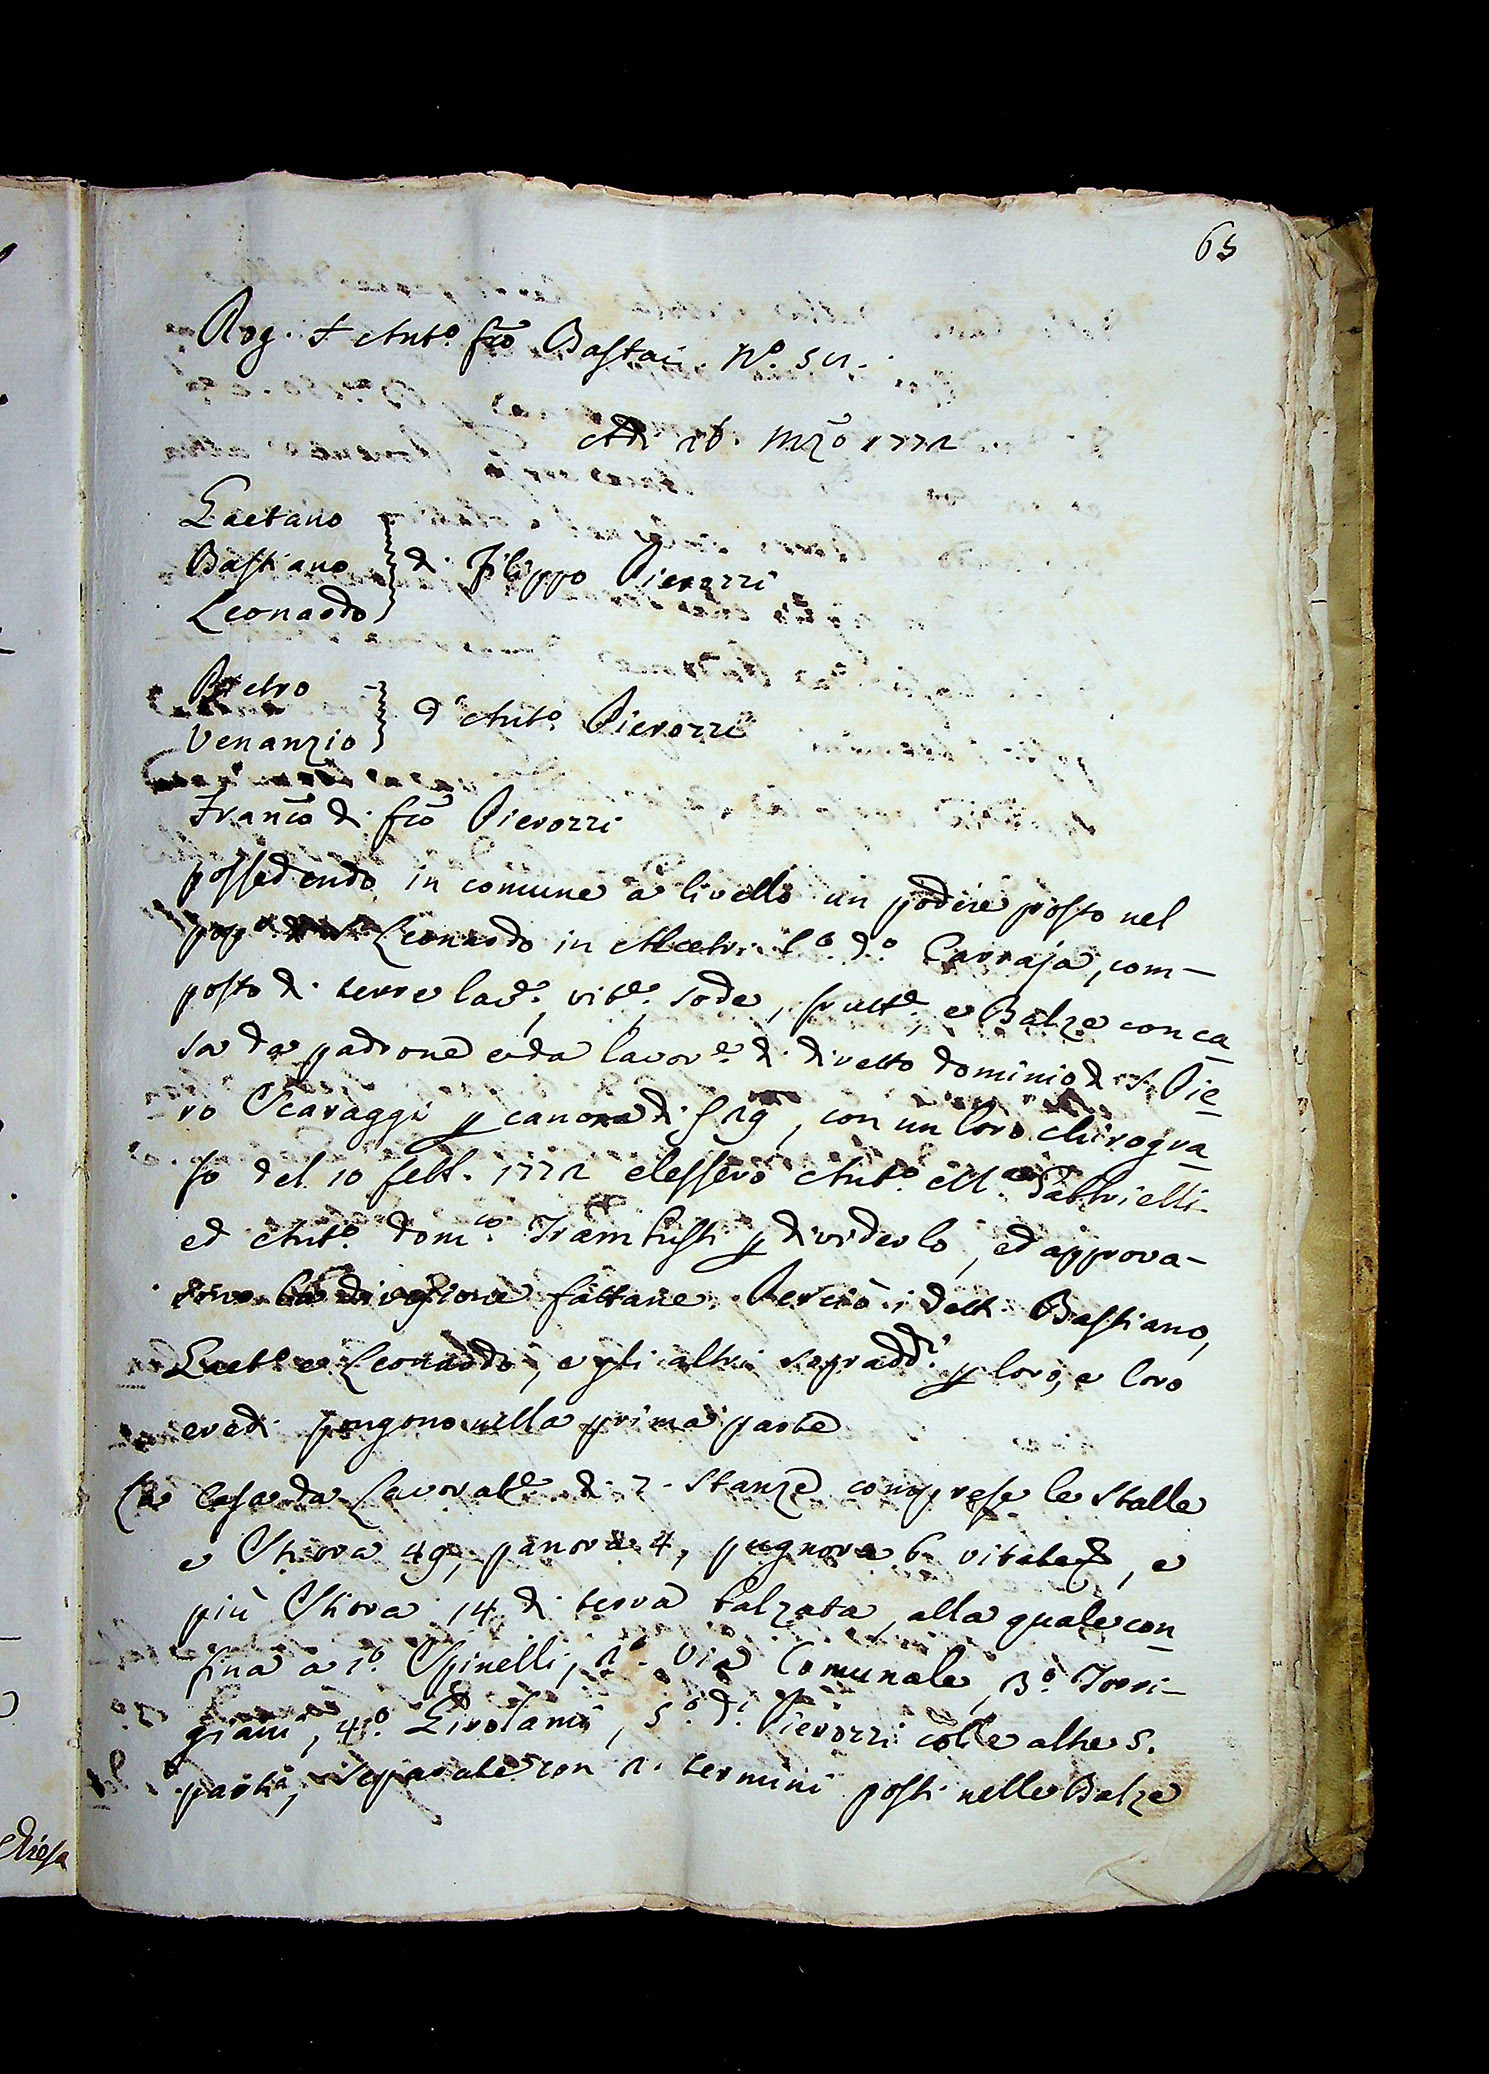 65
Rog. S. Ant.o fco Bastai. N.o 52.
Adi 26. Mzo 1772.
Gaetano
Bastiano } di Filippo Pierozzi
Leonardo
Pietro
Venanzio } d'Ant.o Pierozzi
Franco di fco Pierozzi
possedendo in comune a livello un podere posto nel
pop.o di S. Leonardo in l.o d.o Carraja, com-
posto di terre lav.e, vit.e, sode, frutt.e, e Balze con ca
sa da padrone e da lavor.e di diretto dominio di S. Pie
ro Scaraggi p canone di con un loro chirogra
fo del 10 febb. 1772 elessero Ant.o M.a Gabbrielli
ed Ant.o Dom.co Trambusti p dividerlo, ed approva-
rono la divisione fattane. Perciò i detti Bastiano,
Gaet.o e Leonardo, e gli altri sopradd.i p loro, e loro
eredi pongono nella prima parte
La Casa da Lavorat.e di 7. Stanze comprese le stalle
e Stiora 49, panora 4, pugnora 6 vitate, e
più Stiora 14 di terra balzata, alla quale con
fina a 1.o Spinelli, 2.o Via Comunale, 3.o Torri-
giani, 4.o Girolami, 5.o d.i Pierozzi colle altre 5.
parti, separate con 2. termini posti nelle Balze
Chiesa